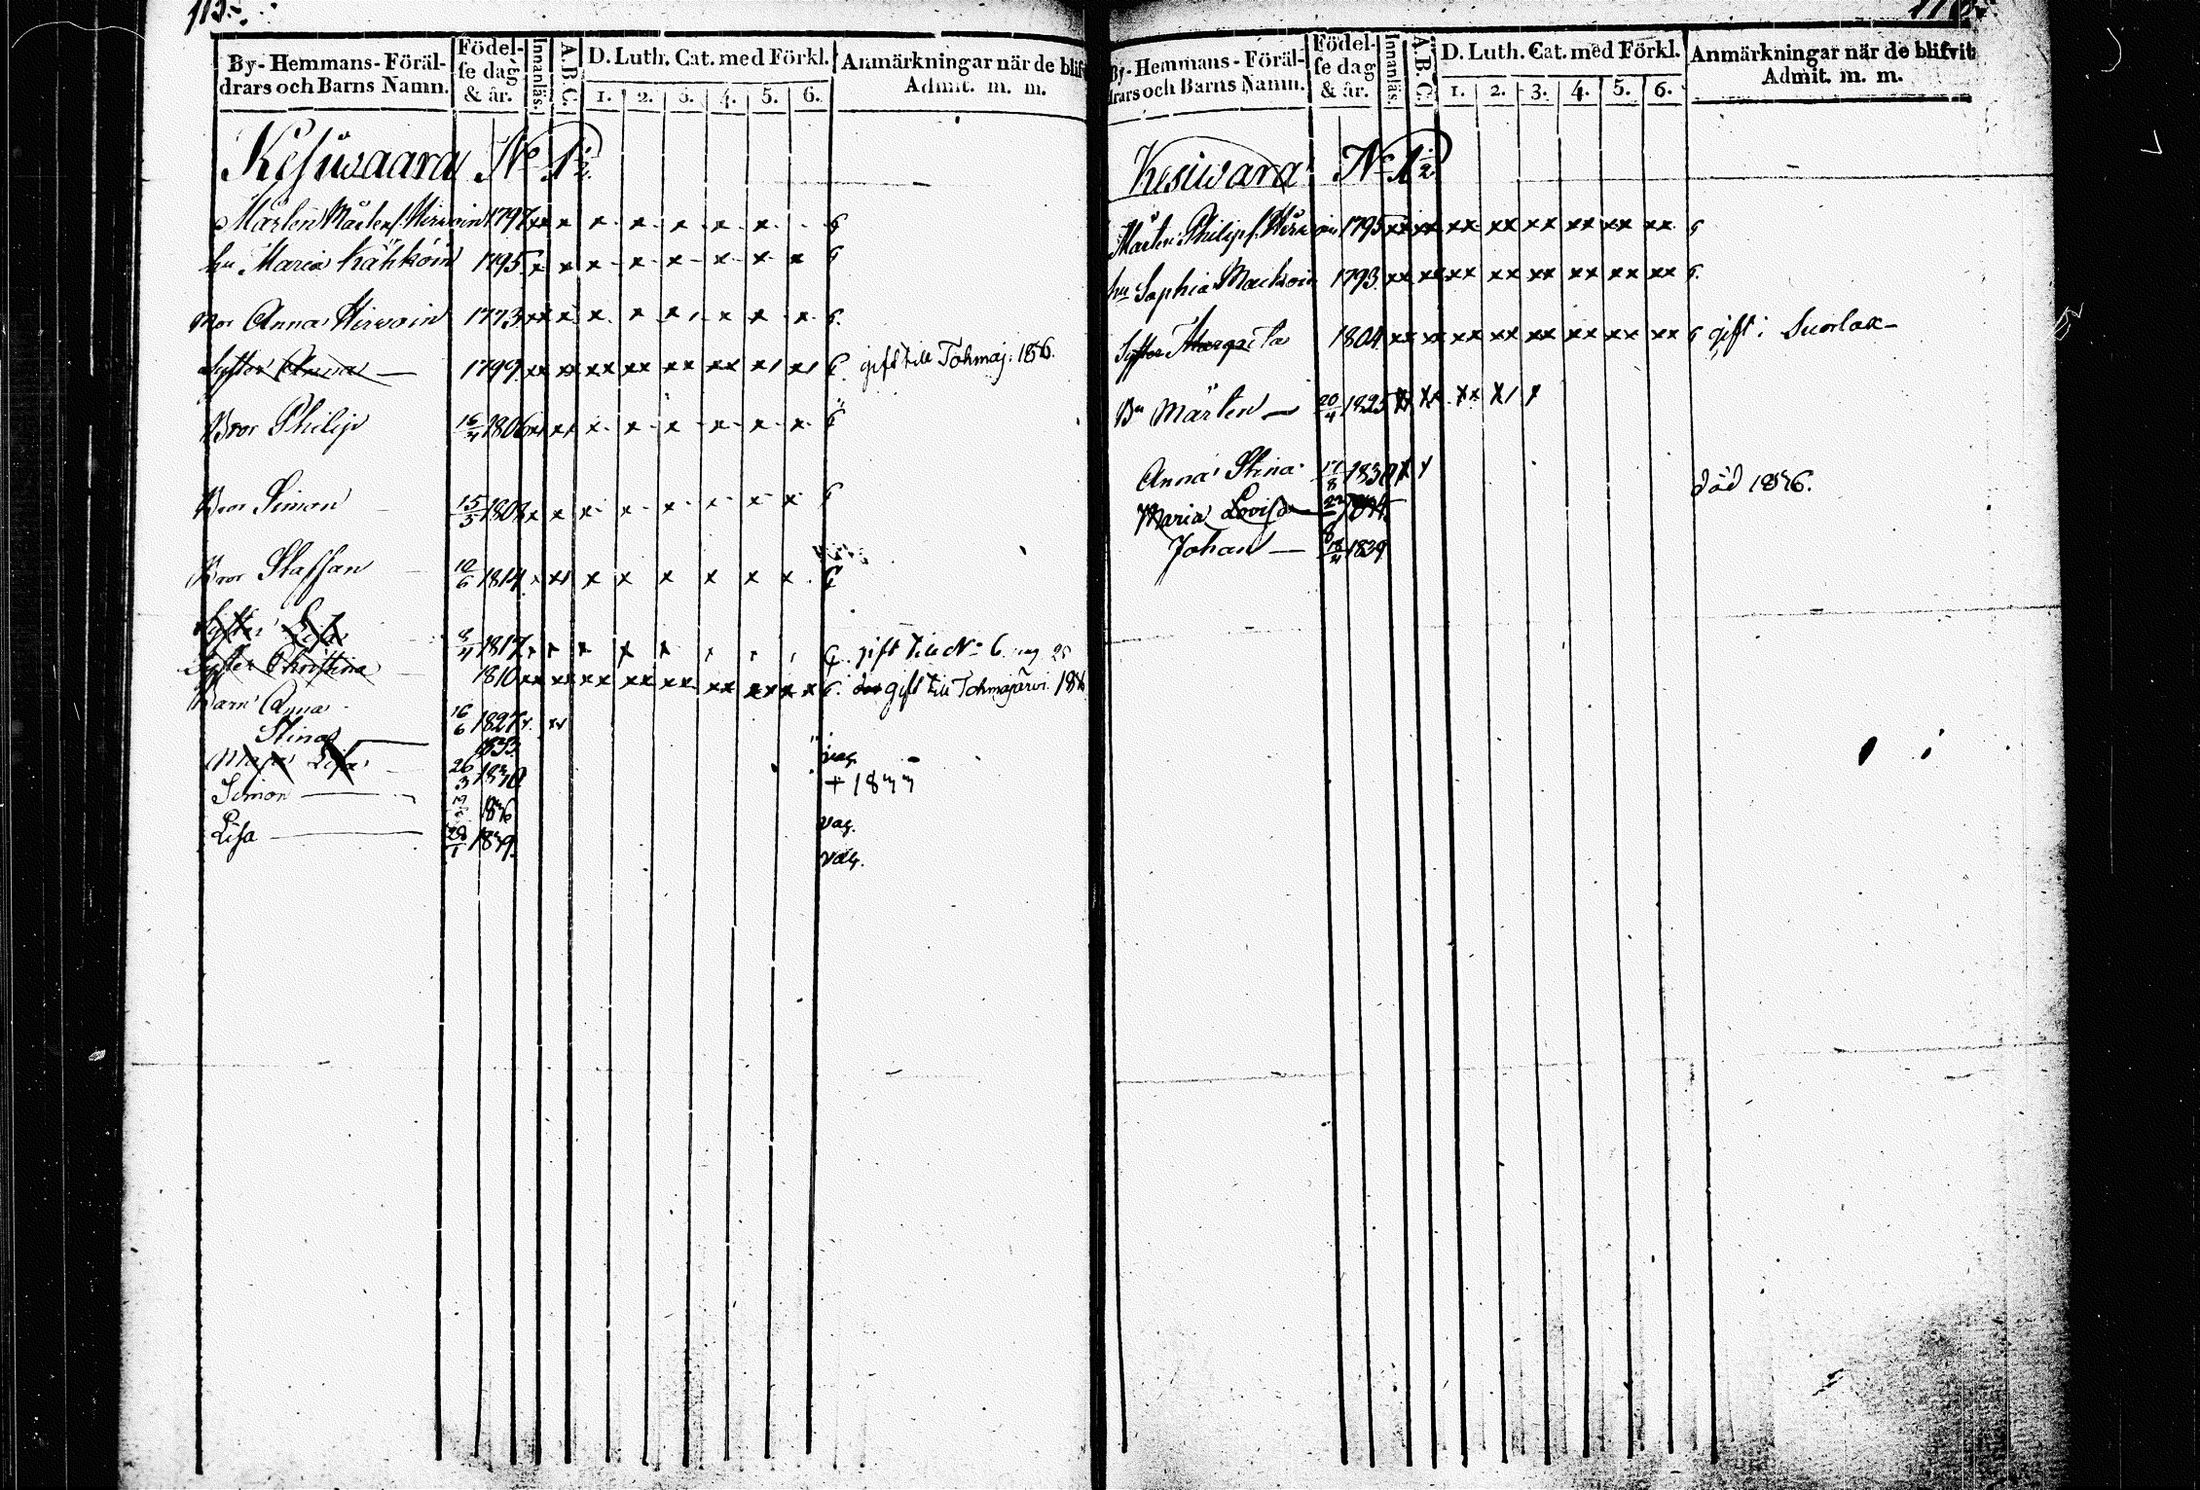 113.
By-Hemmans-Föräl-
drars och Barns Namn.
Födel-
se dag
& år.
Innanläs.
A.B.C.
D. Luth. Cat. med Förkl.
1. 2. 3. 4. 5. 6.
Anmärkningar när de blifv
Admit. m. m.
Kesiwaara No 1 1/2.
Mårten Mårtensf. Hirvoin 1797 xx x x x x x x x 6
hu Maria Kähköin 1795 x x x x x x x x 6
Mor Anna Hirvoin 1773 xx x x x x x x x 6.
Syster Anna — 1799 xx xx xx xx xx xx x1 x1 6 gift till Tohmaj: 1836.
Bror Philip 16/4 1806 x x x x x x x x 6
Bror Simon 15/5 1808 x x x x x x x x 6
Bror Staffan 10/6 1814 x xx x x x x x x 6
Syster Lisa 8/4 1817 x x x x x 6. gift till No 6.
Syster Christina 1810 xx xx xx xx xx xx xx xx 6. gift till Tohmajärvi.
Barn Anna 16/6 1827
Stina — 1833 vac.
Maja Lisa 26/3 1830 + 1833
Simon — 1836 vac.
Lisa — 28/1 1839. vac.
By-Hemmans-Föräl-
drars och Barns Namn.
Födel-
se dag
& år.
Innanläs.
A.B.C.
D. Luth. Cat. med Förkl.
1. 2. 3. 4. 5. 6.
Anmärkningar när de blifvit
Admit. m. m.
Kesiwara No 1 1/2
Mårten Philipsf. Hirvoin 1795 xx xx xx xx xx xx xx xx 6
hu Sophia Mackoin 1793 xx xx xx xx xx xx xx xx 6.
Syster Margeta 1804 xx xx xx xx xx xx xx xx 6 gift i Suorlax
Bn Mårten — 20/4 1825 xx xx xx x1 x
Anna Stina 17/8 1830 x x
Maria Lovisa — 22/8 1834 död 1836.
Johan — 18/4 1839